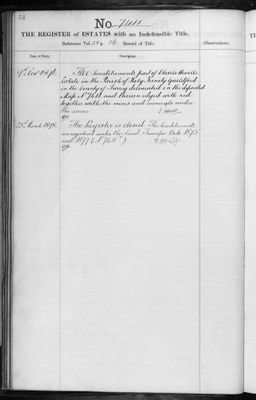 51
No. 7411
THE REGISTER of ESTATES with an Indefeasible Title.
Reference Vol. p. Record of Title.
Observations.
Date of Entry.
Description.
The hereditaments part of Charlotteville
Estate in the Parish of Holy Trinity Guildford
in the County of Surrey delineated on the deposited
Map No 7411 and thereon edged with red
together with the mines and minerals under
the same
The Register is closed. The hereditaments
are registered under the Land Transfer Acts 1875
and 1897 (No